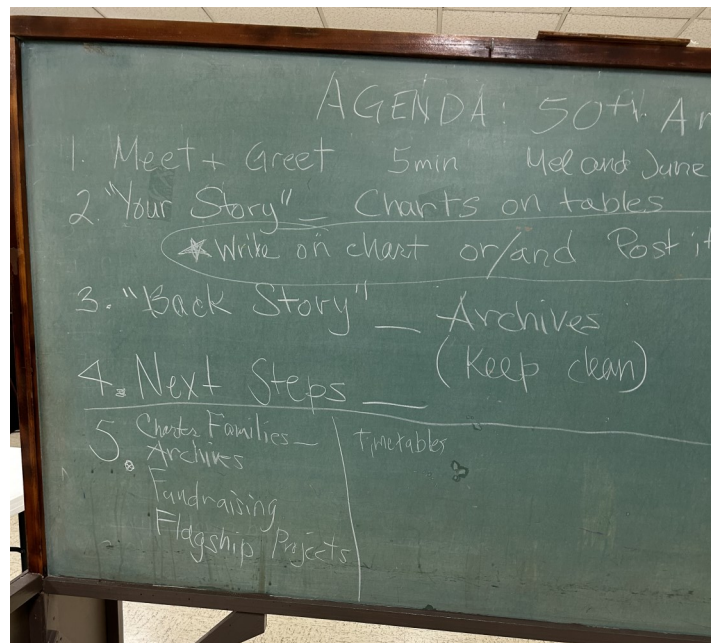 AGENDA: 50th
1. Meet + Greet 5min Mel and June
2. "Your Story" – Charts on tables
★ Write on chart or/and Post it
3. "Back Story" – Archives
(Keep clean)
4. Next Steps —
5. Charter Families –
Archives
Fundraising
Flagship Projects
timetables